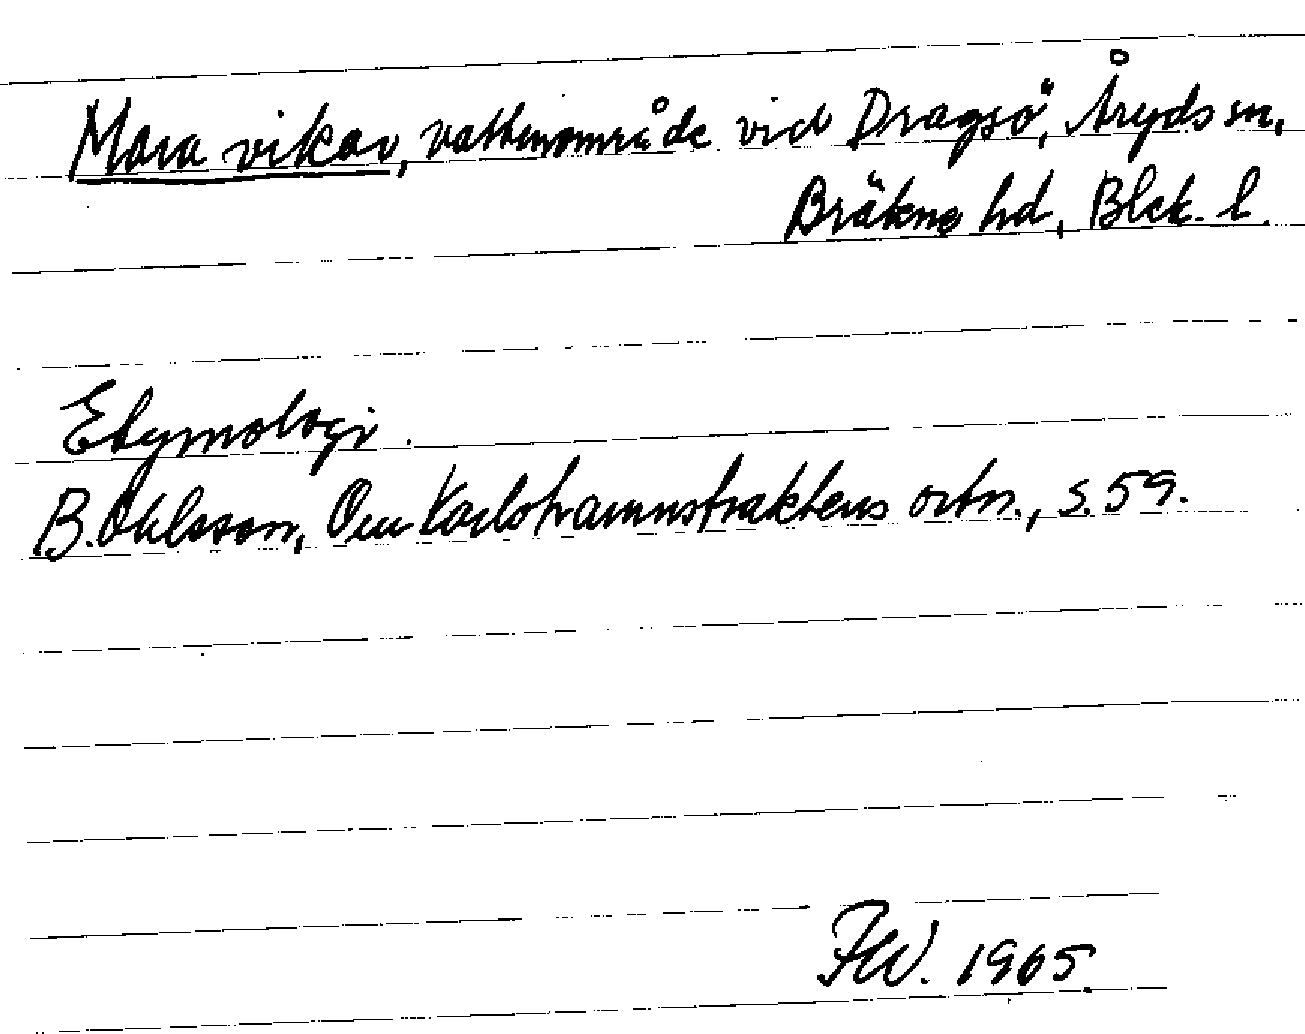 Mara vikar, vattenområde vid Dragsö, Åryds sn,
Bräkne hd, Blek. l.
Etymologi.
B. Ohlsson, Om Karlshamnstraktens ortn., s. 59.
FW. 1965